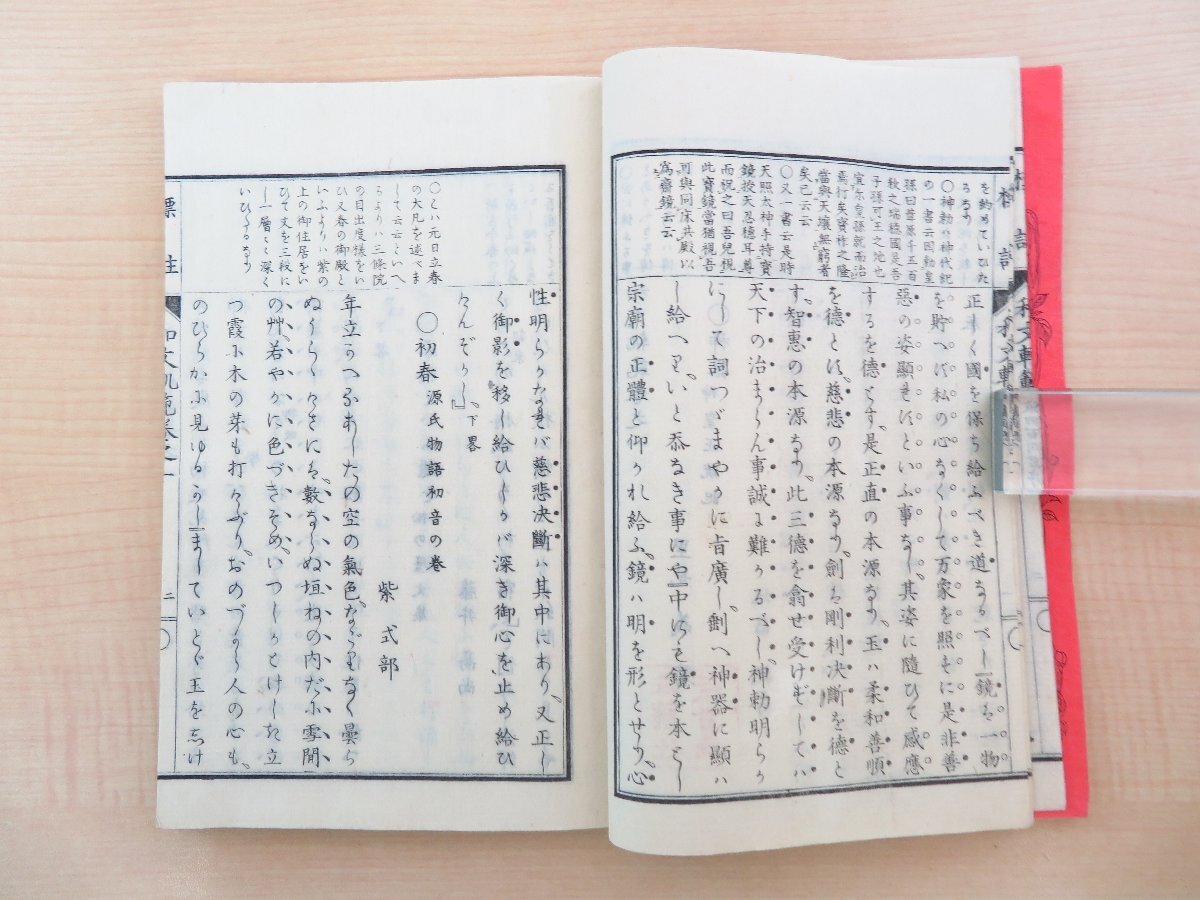 を納めていひた
るなり
〇神勅ハ神代紀
の一書云因勅皇
孫曰葦原千五百
秋之瑞穂國是吾
子孫可王之地也
宜尓皇孫就而治
焉行矣寶祚之隆
當與天壤無窮者
矣已云云
〇又一書云是時
天照太神手持寶
鏡授天忍穗耳尊
而祝之曰吾兒視
此寶鏡當猶視吾
可與同床共殿以
爲齋鏡云云
正しく國を保ち給ふべき道なるべし鏡は一物
を貯へず私の心なくして万象を照すに是非善
惡の姿顯れずといふ事なし其姿に隨ひて感應
するを德とす是正直の本源なり玉ハ柔和善順
を德とす慈悲の本源なり劍は剛利決斷を德と
す智惠の本源なり此三德を翕せ受けずしてハ
天下の治まらん事誠に難かるべし神勅明らか
にして詞つゞまやかに旨廣し剩へ神器に顯ハ
し給へりいと忝なき事にや中にも鏡を本とし
宗廟の正體と仰がれ給ふ鏡ハ明を形とせり心
〇こハ元日立春
の大凡を述べま
して云云といへ
るよりハ三條院
の目出度樣をい
ひ又春の御殿と
いふよりハ紫の
上の御住居をい
ひて文を三段に
し一層々々深く
いひたるなり
性明らかなれバ慈悲決斷ハ其中にあり又正し
く御影を移し給ひしかバ深き御心を止め給ひ
けんぞかし』下畧
〇初春 源氏物語初音の巻
紫式部
年立かへるあしたの空の氣色なごりなく曇ら
ぬうらゝけさには數ならぬ垣ねの内だに雪間
の艸若やかに色づきそめいつしかとけしき立
つ霞に木の芽も打けぶりおのづから人の心も
のびらかに見ゆるかしましていとゞ玉をしけ
標註
和文軌範巻之一
二